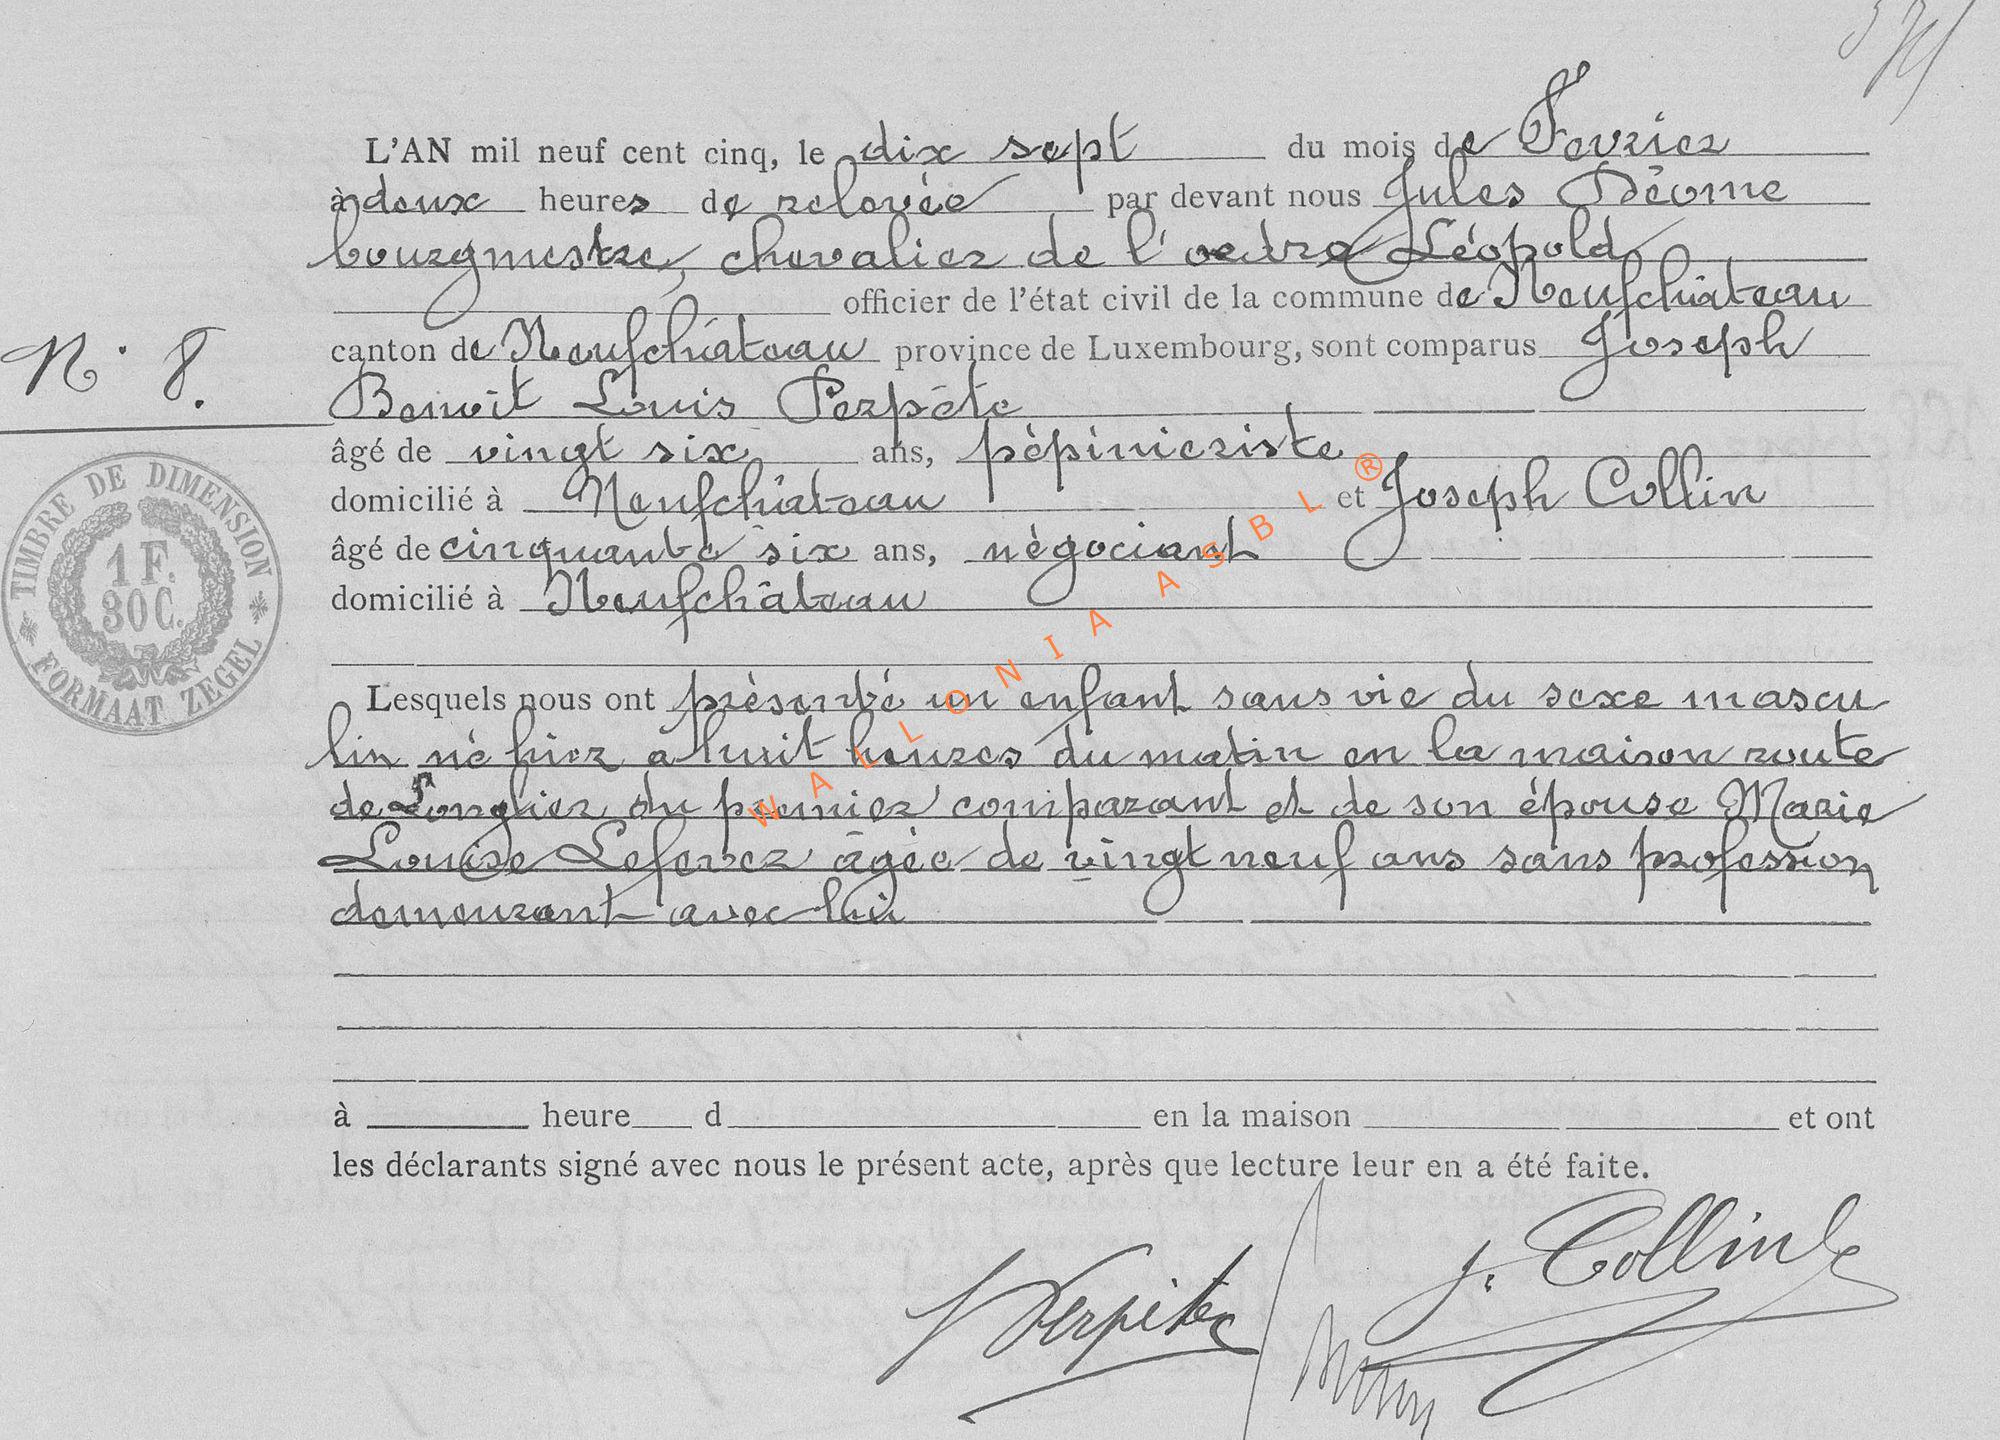 L'AN mil neuf cent cinq, le dix sept du mois de Fevrier
à deux heures de relevée par devant nous Jules Déome
bourgmestre, chevalier de l'ordre Léopold
officier de l'état civil de la commune de Neufchâteau
N° 8.
canton de Neufchâteau province de Luxembourg, sont comparus Joseph
Benoit Louis Perpète
âgé de vingt six ans, pépinieriste
domicilié à Neufchâteau et Joseph Collin
âgé de cinquante six ans, négociant
domicilié à Neufchâteau
TIMBRE DE DIMENSION
1 F.
30 C.
FORMAAT ZEGEL
WALLONIA ASBL ®
Lesquels nous ont présenté un enfant sans vie du sexe mascu
lin né hier a huit heures du matin en la maison route
de Longlier du premier comparant et de son épouse Marie
Louise Lefever âgée de vingt neuf ans sans profession
demeurant avec lui
à heure d en la maison et ont
les déclarants signé avec nous le présent acte, après que lecture leur en a été faite.
J. Collin
Perpète